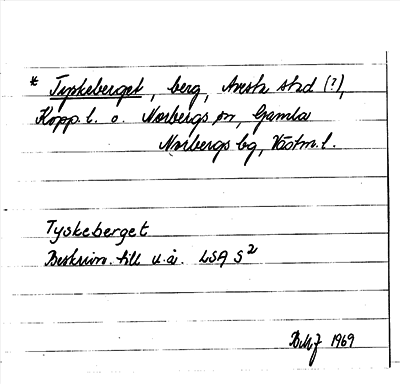 * Tyskeberget, berg, Avesta stad (?),
Kopp. l. o. Norbergs sn, Gamla
Norbergs bg, Västm. l.
Tyskeberget
Beskrivn. till u.å. LSA S²
1969